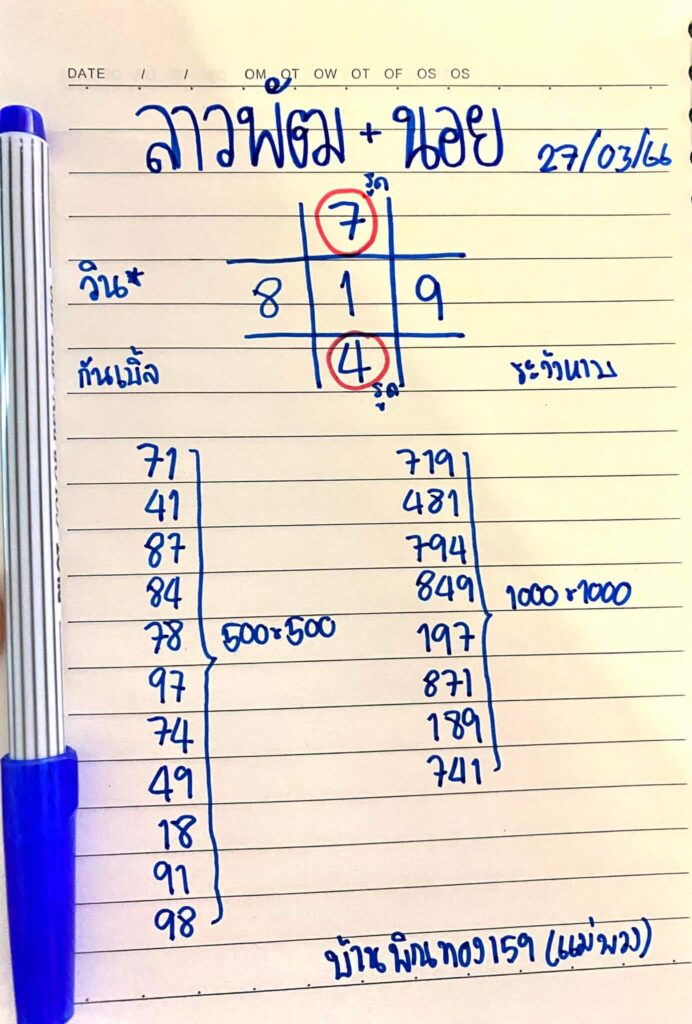 DATE / / OM OT OW OT OF OS OS
ลาวพัฒนา + นอย 27/03/66
รูด
7
วิน* 8 1 9
กันเบิ้ล 4 ระวังหาม
รูด
71 719
41 481
87 794
84 849 1000×1000
78 500×500 197
97 871
74 189
49 741
18
91
98
บ้านพิณทอง159 (แม่พวง)